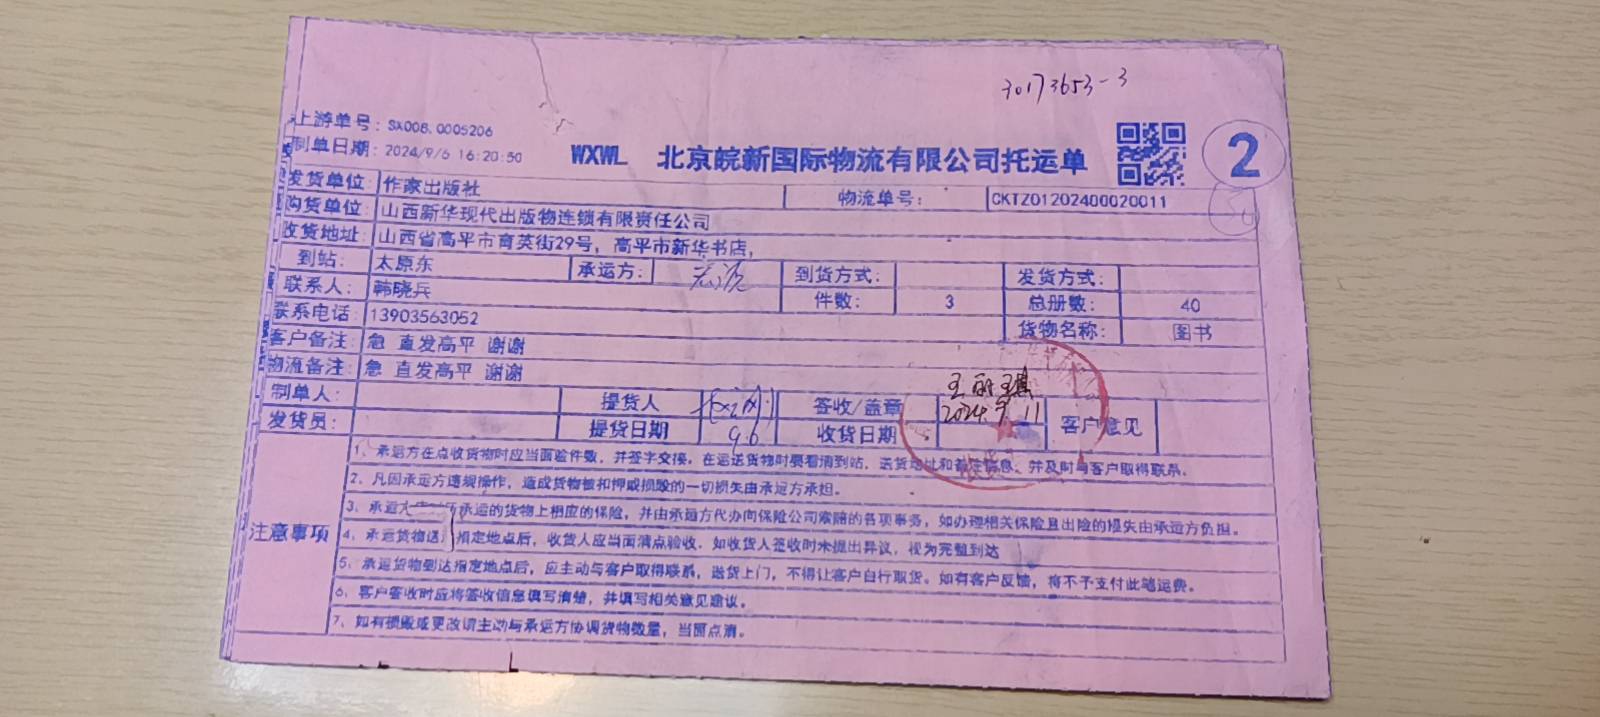 30173653-3
上游单号：SX008.0005206
制单日期：2024/9/6 16:20:50
WXWL 北京皖新国际物流有限公司托运单
2
发货单位：作家出版社 物流单号：CKTZ01202400020011
购货单位：山西新华现代出版物连锁有限责任公司
收货地址：山西省高平市育英街29号，高平市新华书店，
到站：太原东 承运方： 到货方式： 发货方式：
联系人：韩晓兵 件数：3 总册数：40
联系电话：13903563052 货物名称：图书
客户备注：急 直发高平 谢谢
物流备注：急 直发高平 谢谢
制单人： 提货人 签收/盖章 王丽琪 客户意见
发货员： 提货日期 9.6 收货日期 2024.9.11
注意事项
1、承运方在点收货物时应当面验件数，并签字交接，在运送货物时要看清到站，送货地址和备注信息，并及时与客户取得联系。
2、凡因承运方违规操作，造成货物被扣押或损毁的一切损失由承运方承担。
3、承运方应对所承运的货物上相应的保险，并由承运方代办向保险公司索赔的各项事务，如办理相关保险且出险的损失由承运方负担。
4、承运货物送 指定地点后，收货人应当面清点验收。如收货人签收时未提出异议，视为完整到达
5、承运货物到达指定地点后，应主动与客户取得联系，送货上门，不得让客户自行取货。如有客户反馈，将不予支付此笔运费。
6、客户签收时应将签收信息填写清楚，并填写相关意见建议。
7、如有损毁或更改请主动与承运方协调货物数量，当面点清。